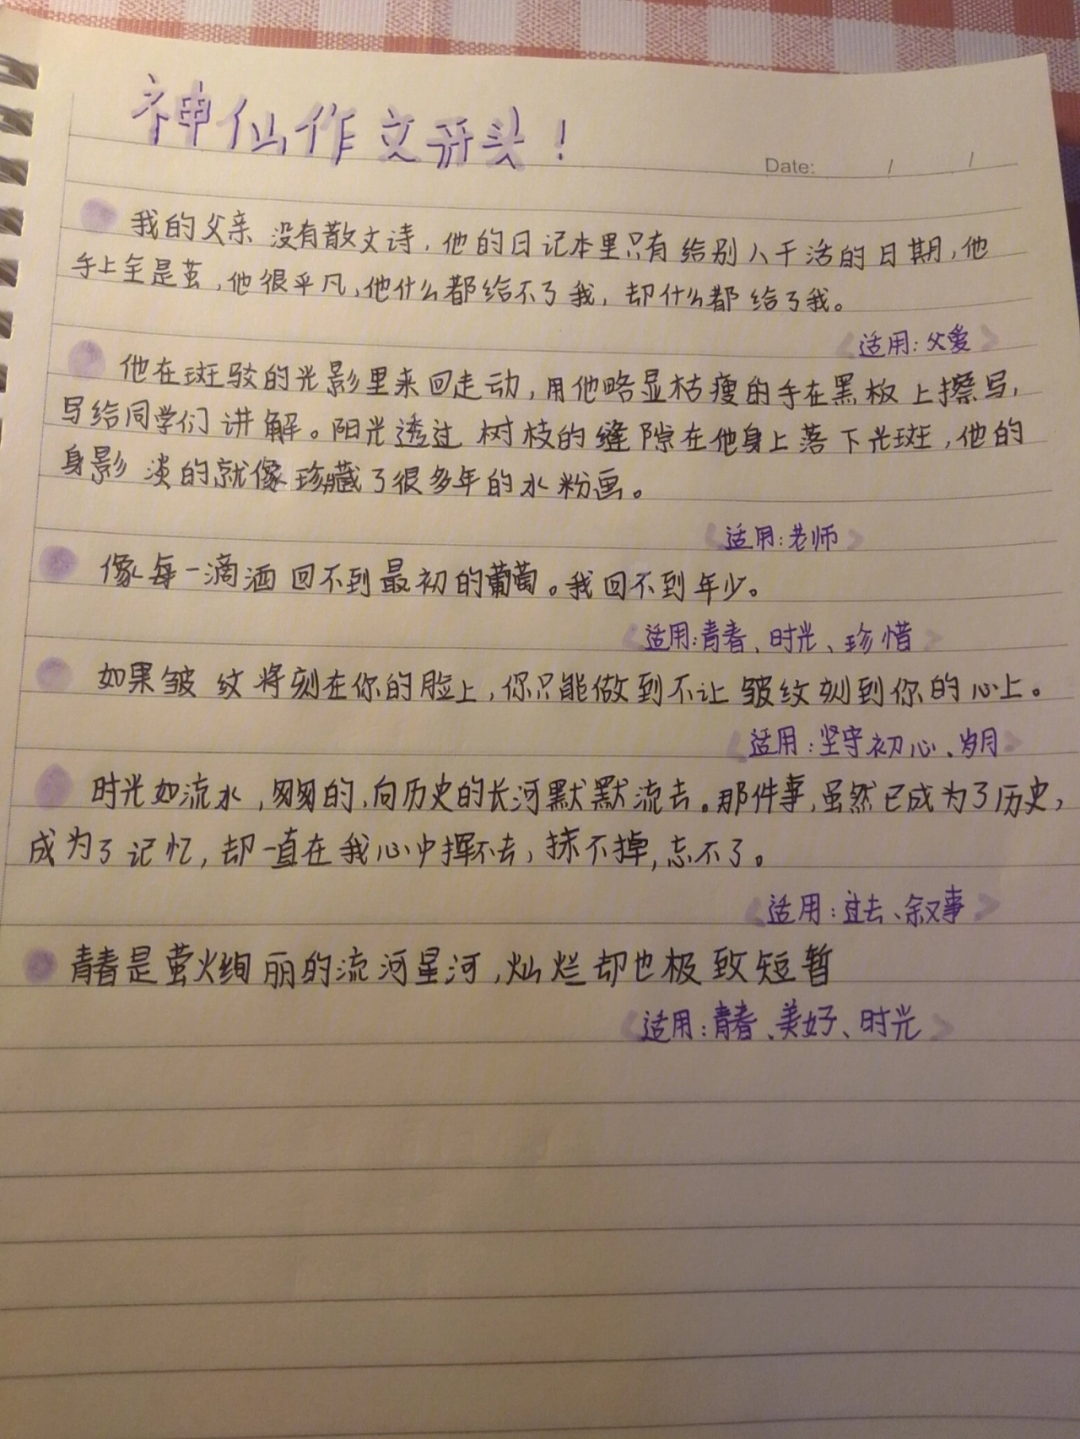 神仙作文开头!
Date: / /
我的父亲没有散文诗,他的日记本里只有给别人干活的日期,他
手上全是茧,他很平凡,他什么都给不了我,却什么都给了我。
适用:父爱
他在斑驳的光影里来回走动,用他略显枯瘦的手在黑板上擦写,
写给同学们讲解。阳光透过树枝的缝隙在他身上落下光斑,他的
身影淡的就像珍藏了很多年的水粉画。
适用:老师
像每一滴酒回不到最初的葡萄。我回不到年少。
适用:青春、时光、珍惜
如果皱纹将刻在你的脸上,你只能做到不让皱纹刻到你的心上。
适用:坚守初心、岁月
时光如流水,匆匆的,向历史的长河默默流去。那件事,虽然已成为了历史,
成为了记忆,却一直在我心中挥不去,抹不掉,忘不了。
适用:过去、叙事
青春是萤火绚丽的流河星河,灿烂却也极致短暂
适用:青春、美好、时光